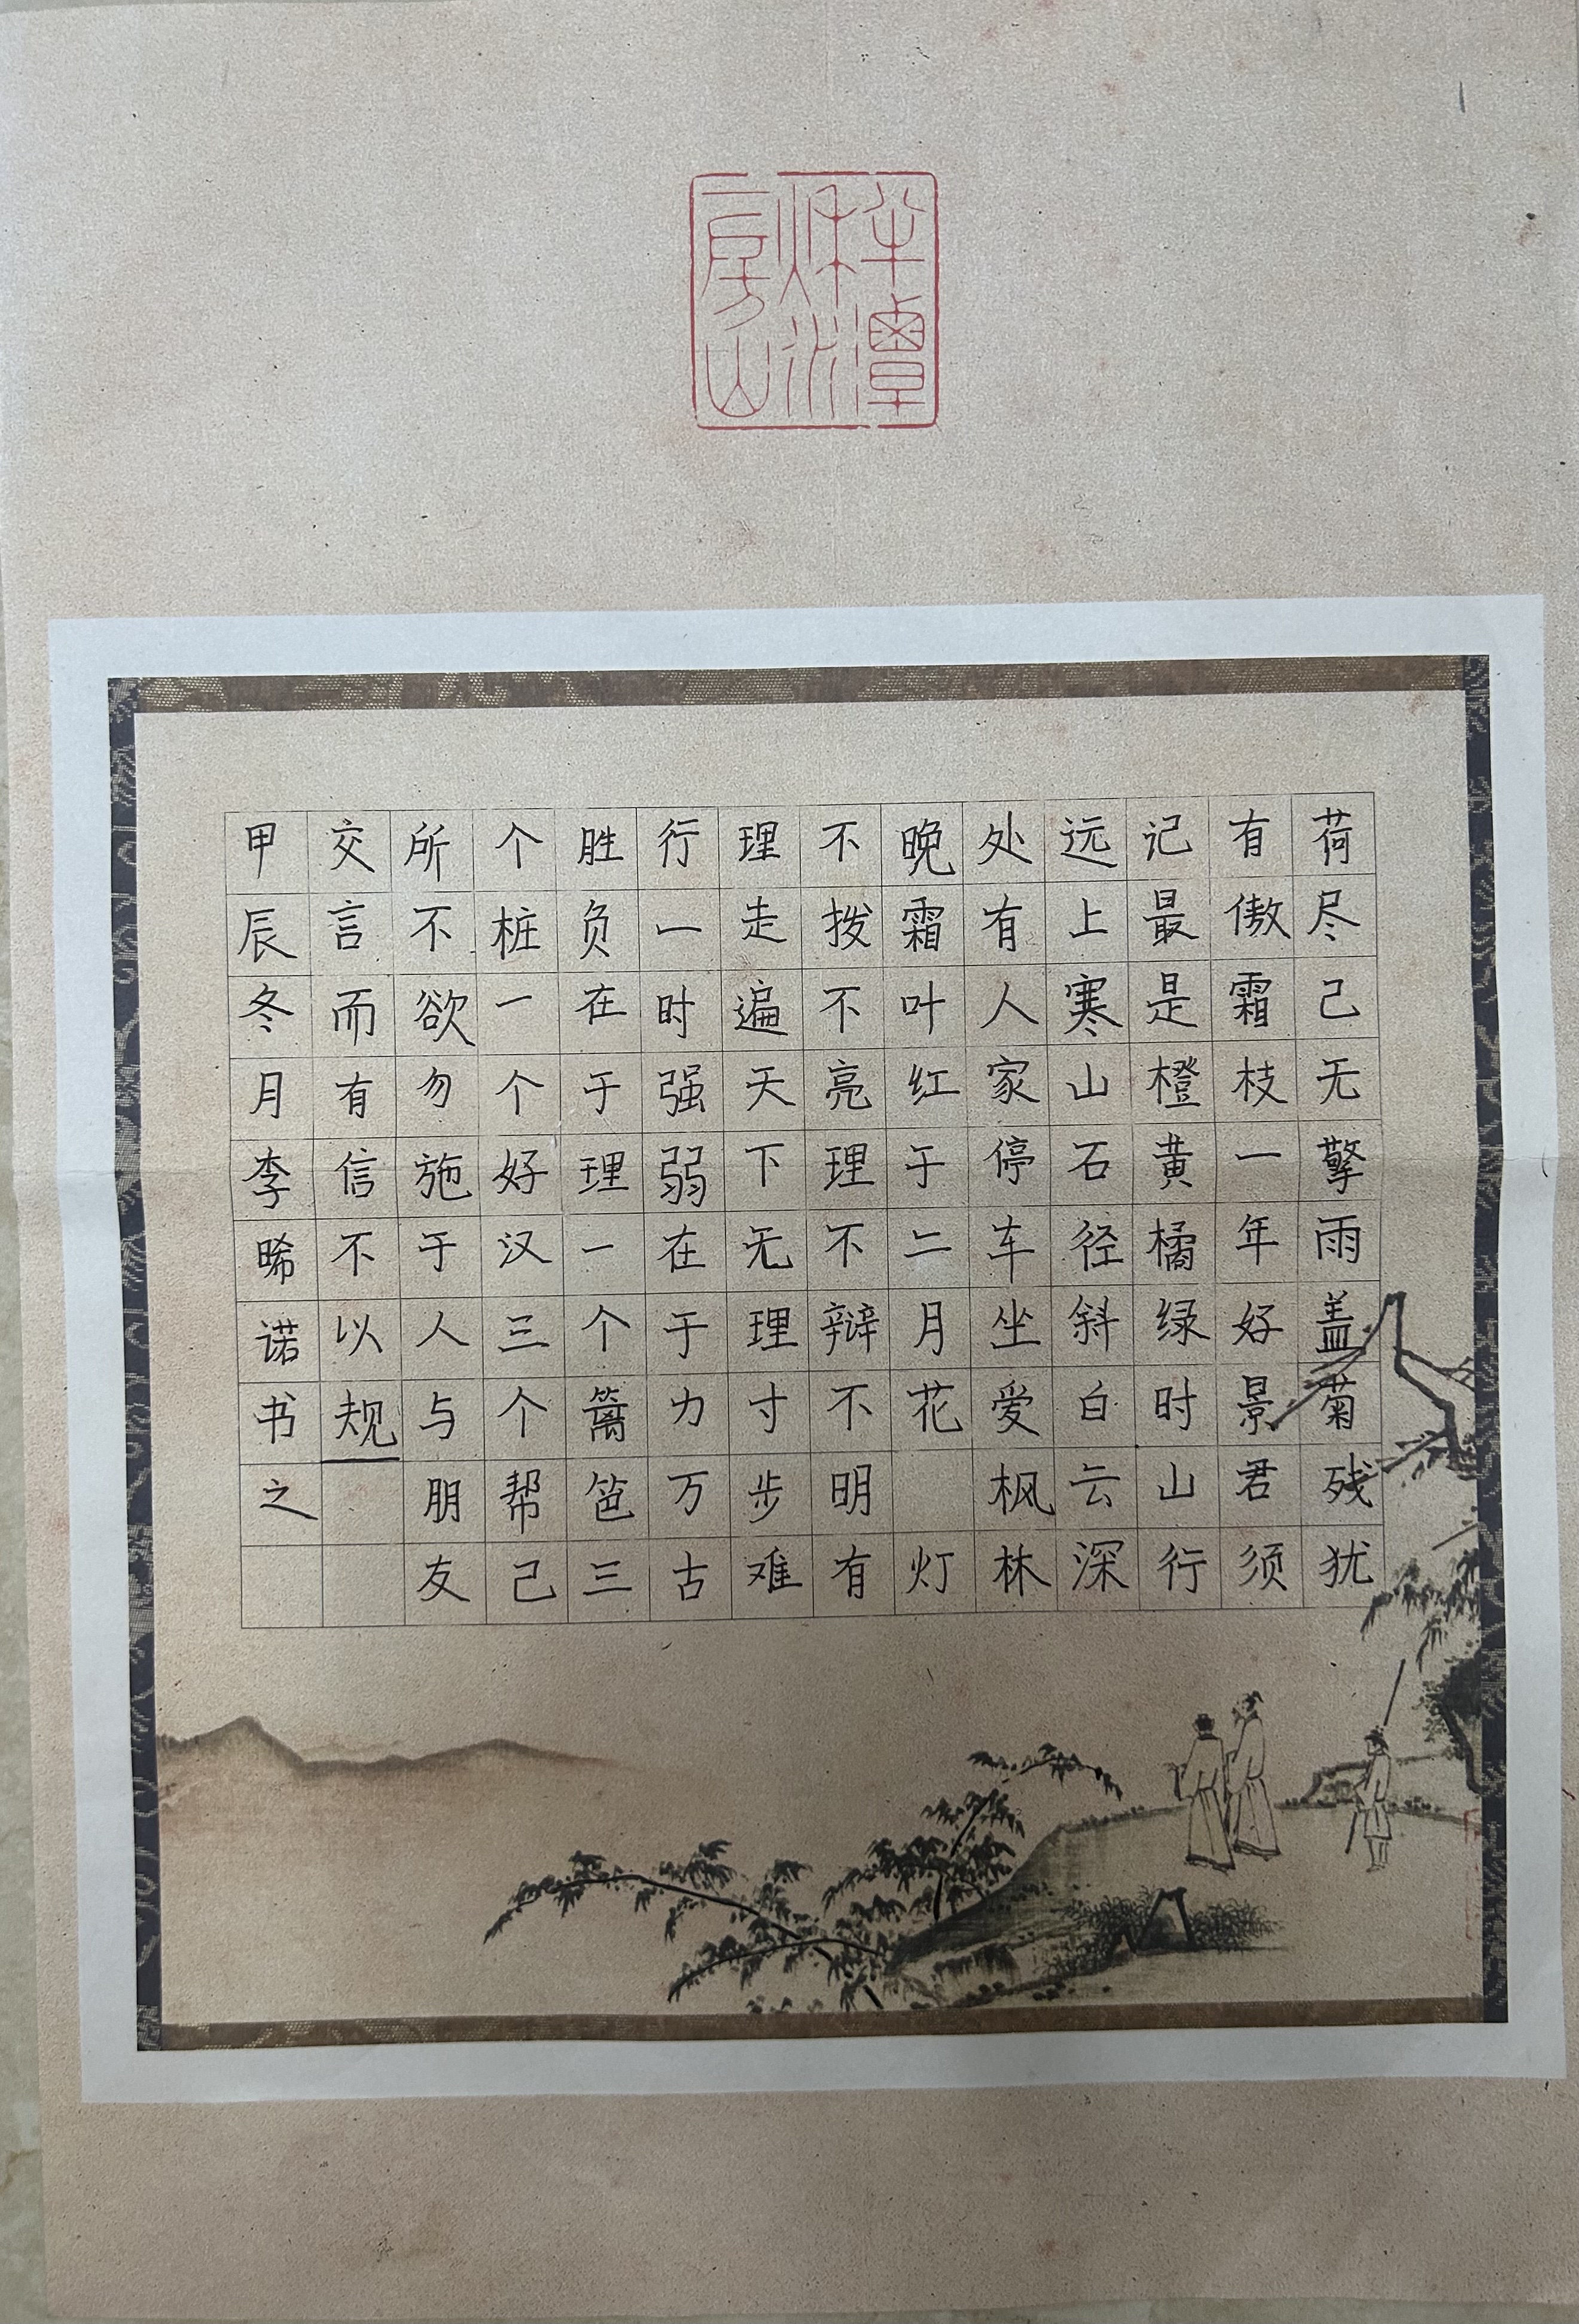 半潭
秋水
一房山
荷尽己无擎雨盖菊残犹
有傲霜枝一年好景君须
记最是橙黄橘绿时山行
远上寒山石径斜白云深
处有人家停车坐爱枫林
晚霜叶红于二月花 灯
不拨不亮理不辩不明有
理走遍天下无理寸步难
行一时强弱在于力万古
胜负在于理一个篱笆三
个桩一个好汉三个帮己
所不欲勿施于人与朋友
交言而有信不以规
甲辰冬月李晞诺书之